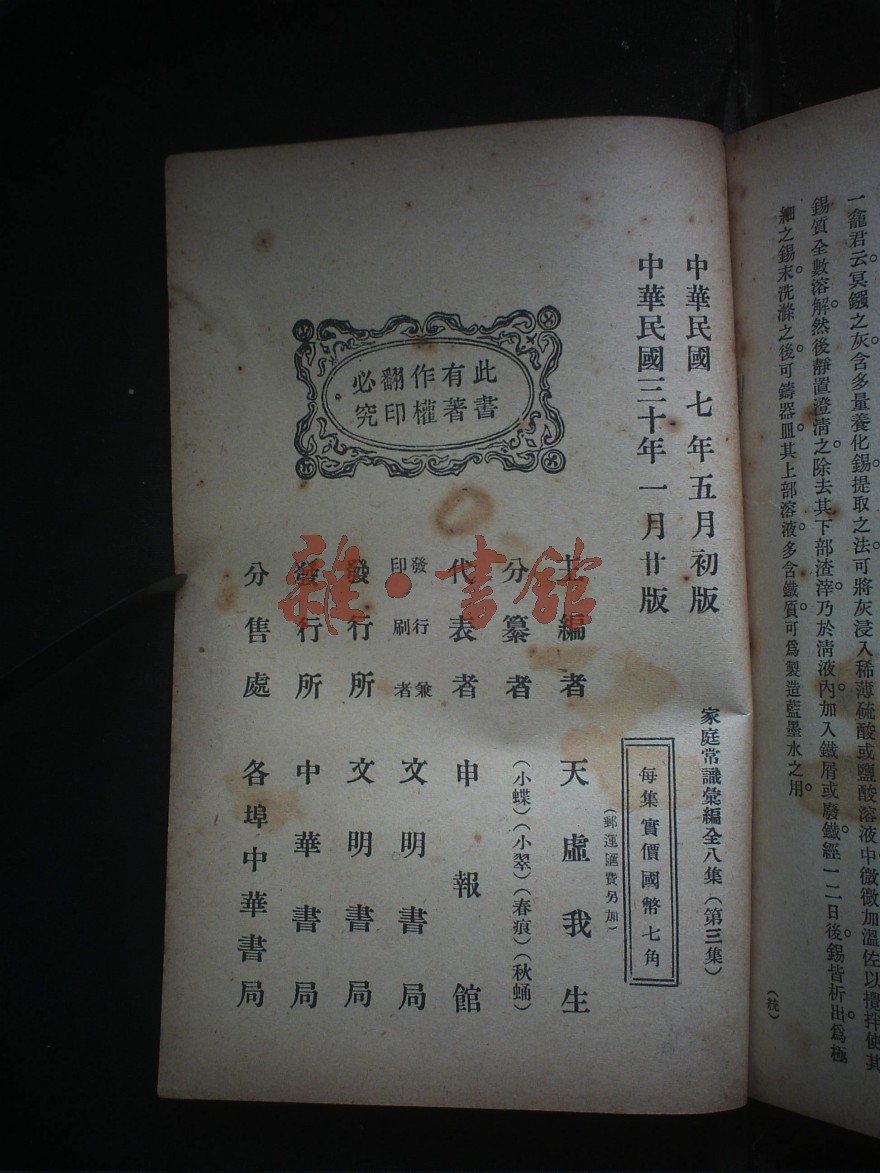 一龕君云冥鏹之灰含多量養化錫提取之法可將灰浸入稀薄硫酸或鹽酸溶液中微微加溫佐以攪拌使其
錫質全數溶解然後靜置澄清之除去其下部渣滓乃於清液內加入鐵屑或廢鐵經一二日後錫皆析出爲極
細之錫末洗滌之後可鑄器皿其上部溶液多含鐵質可爲製造藍墨水之用
中華民國七年五月初版
中華民國三十年一月廿版
家庭常識彙編全八集(第三集)
每集實價國幣七角
(郵運匯費另加)
此書
有著
作權
翻印
必究
主編者 天虛我生
分纂者 (小蝶)(小翠)(春痕)(秋蛹)
代表者 申報館
發行兼
印刷者 文明書局
發行所 文明書局
發行所 中華書局
分售處 各埠中華書局
雜·書館